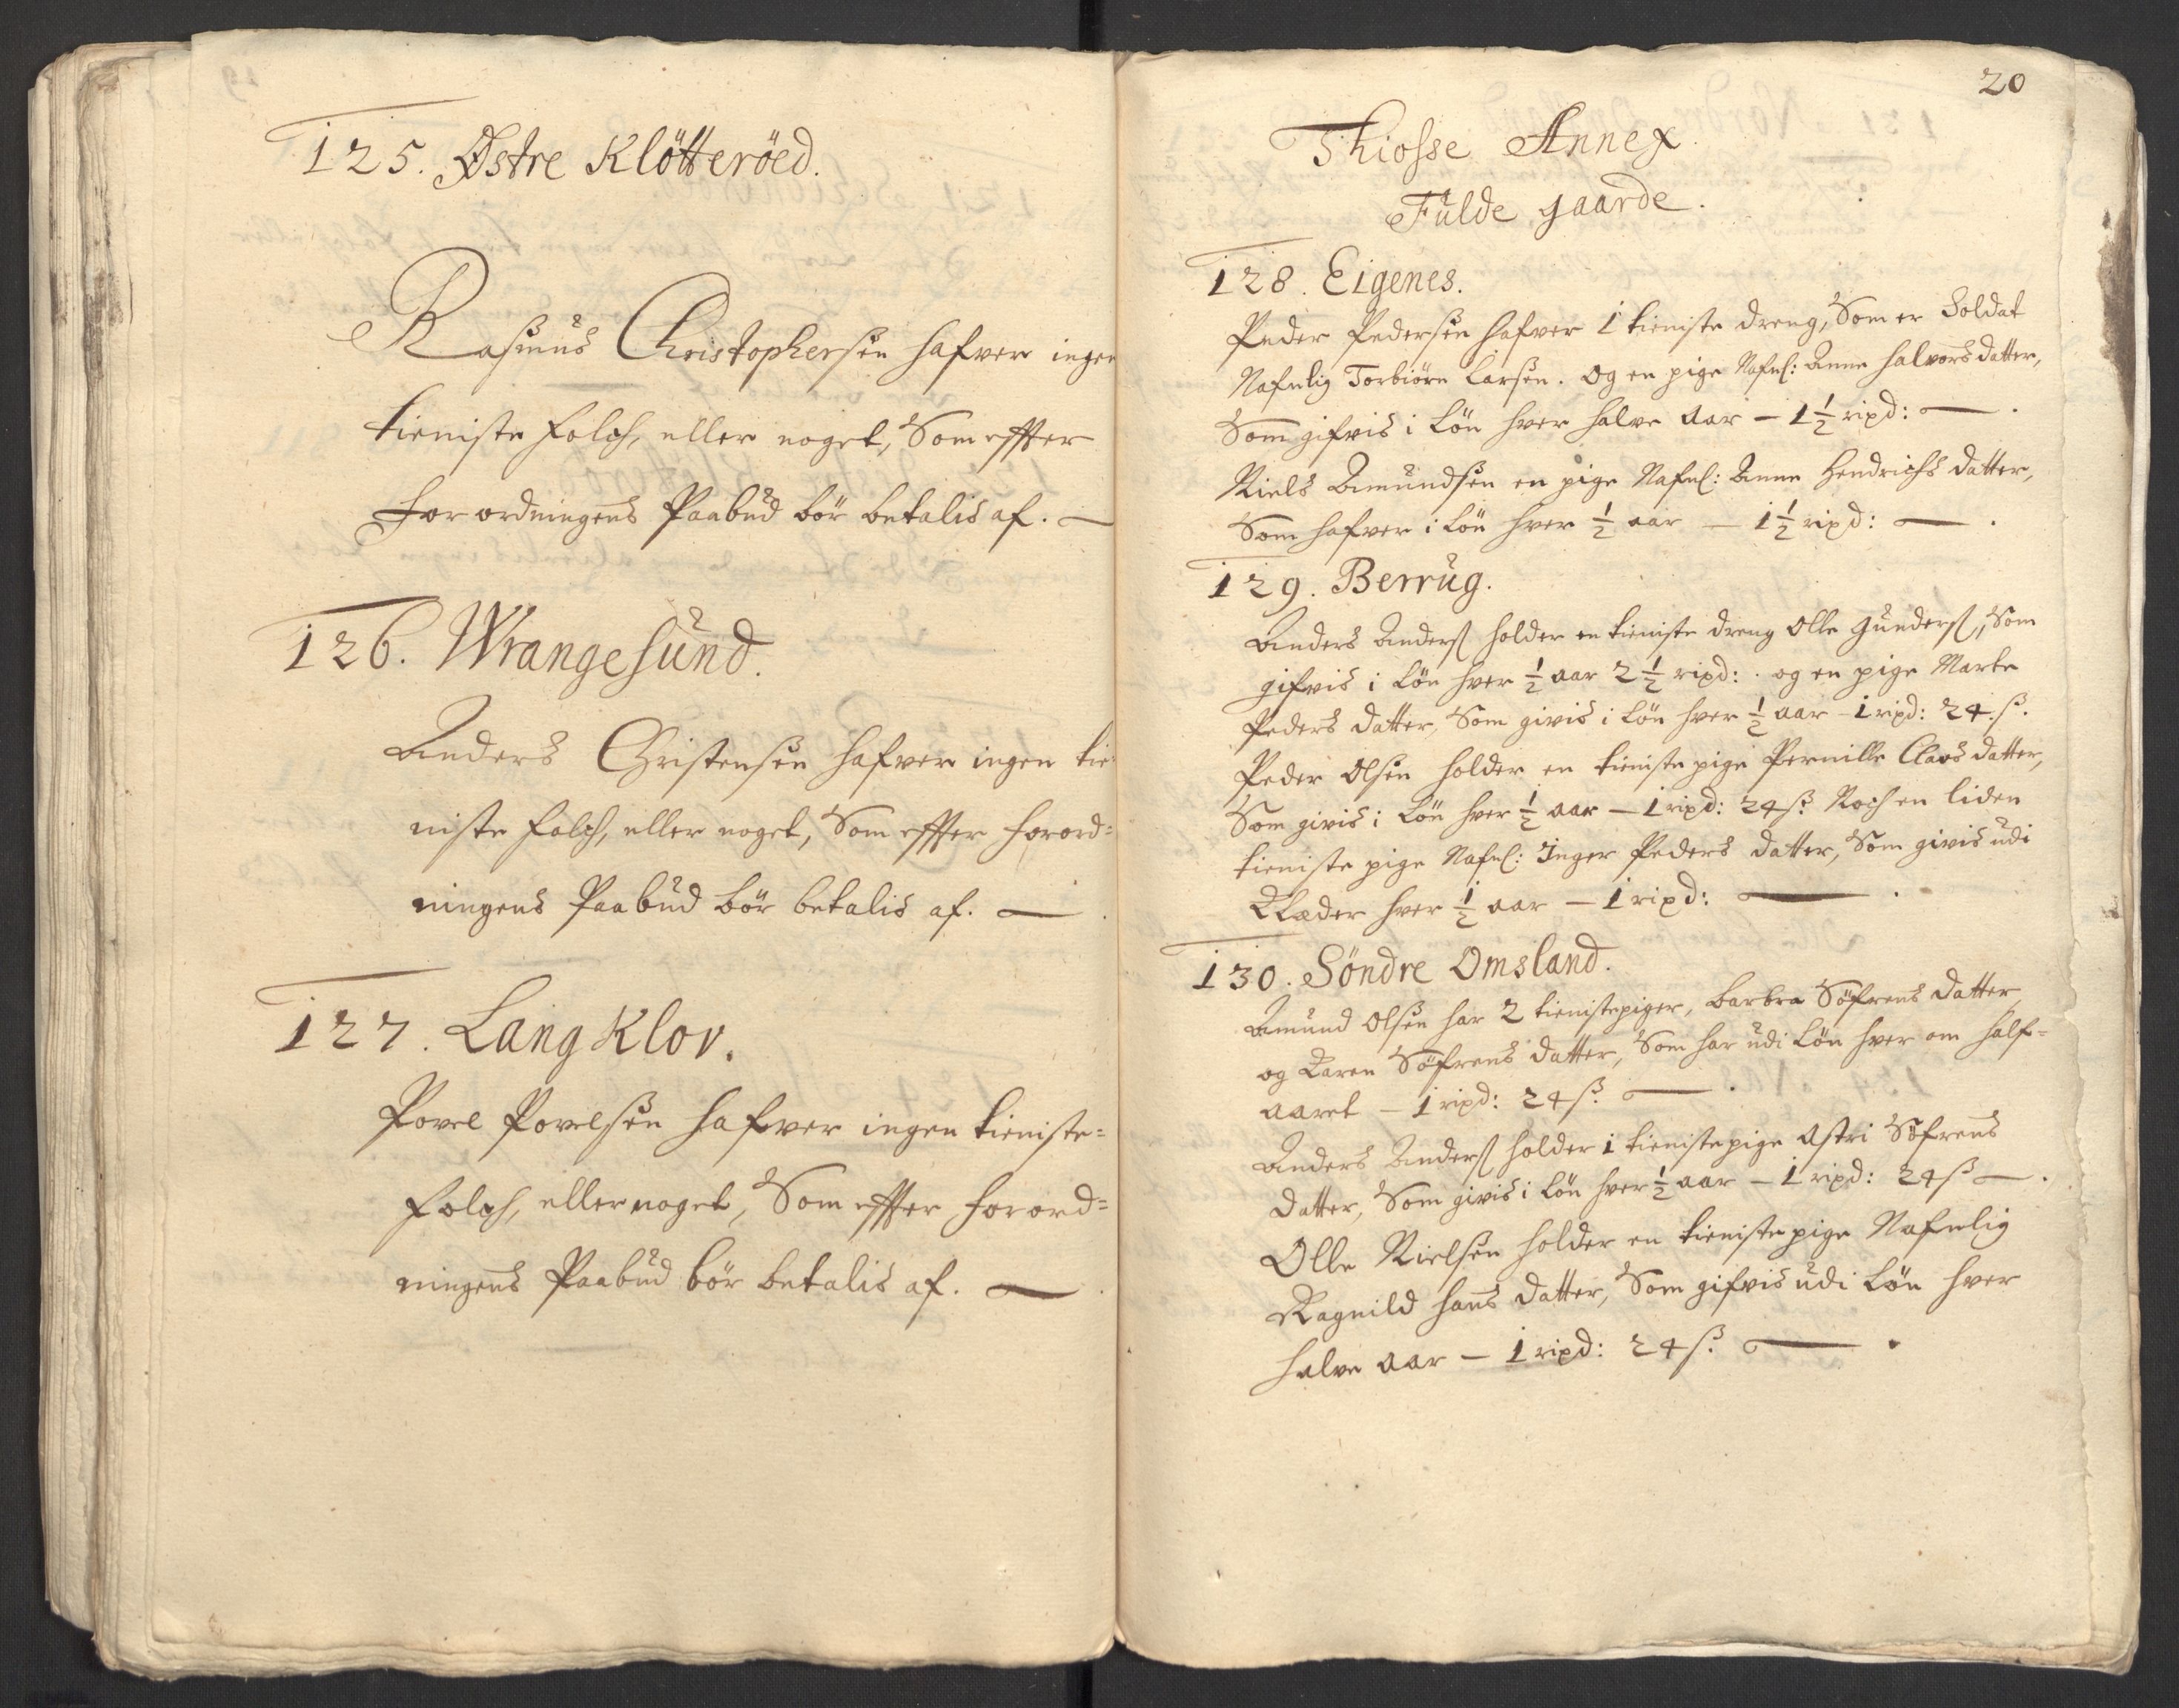 125. Østre Klötteröed.
Rasmus Christophersen hafver ingen
tieniste folch, eller noget, Som effter
Forordningens Paabud bör betalis af. —
126. Wrangesund.
Anders Christensen hafver ingen tie-
niste folch, eller noget, Som effter forord=
ningens Paabud bör betalis af. —
127. Lang Klov.
Povel Povelsen hafver ingen tieniste=
folch, eller noget, Som effter forord=
ningens Paabud bör betalis af. —
20
Thiosse Annex.
Fulde gaarde.
128. Eigenes.
Peder Pedersen hafver 1 tieniste dreng, Som er Soldat
Nafnlig Torbiörn Larsen. Og en pige Nafnl: Anne halvors datter,
Som gifvis i Lön hver halve Aar — 1 1/2 rixd: —.
Niels Amundsen en pige Nafnl: Anne Hendrichs datter,
Som hafver i Lön hver 1/2 aar — 1 1/2 rixd: —.
129. Berrug.
Anders Anderß holder en tieniste dreng Olle Gunderß, Som
gifvis i Lön hver 1/2 aar 2 1/2 rixd: . og en pige Marte
Peders datter, Som givis i Lön hver 1/2 aar – 1 rixd: 24. ß.
Peder Olsen holder en tieniste pige Pernille Clavs datter,
Som givis i Lön hver 1/2 aar — 1 rixd: 24 ß. Noch en liden
tieniste pige Nafnl: Inger Peders datter, Som givis udi
Klæder hver 1/2 aar — 1 rixd: —.
130. Söndre Omsland.
Amund Olsen har 2 tienistepiger, barbra Söfrens datter,
og Karen Söfrens datter, Som har udi Lön hver om half=
aaret — 1 rixd: 24 ß. —.
Anders Anderß holder 1 tienistepige Astri Söfrens
datter, Som givis i Lön hver 1/2 aar — 1 rixd: 24 ß —.
Olle Nielsen holder en tieniste pige Nafnlig
Ragnild hans datter, Som gifvis udi Lön hver
halve aar — 1 rixd: 24 ß. —.